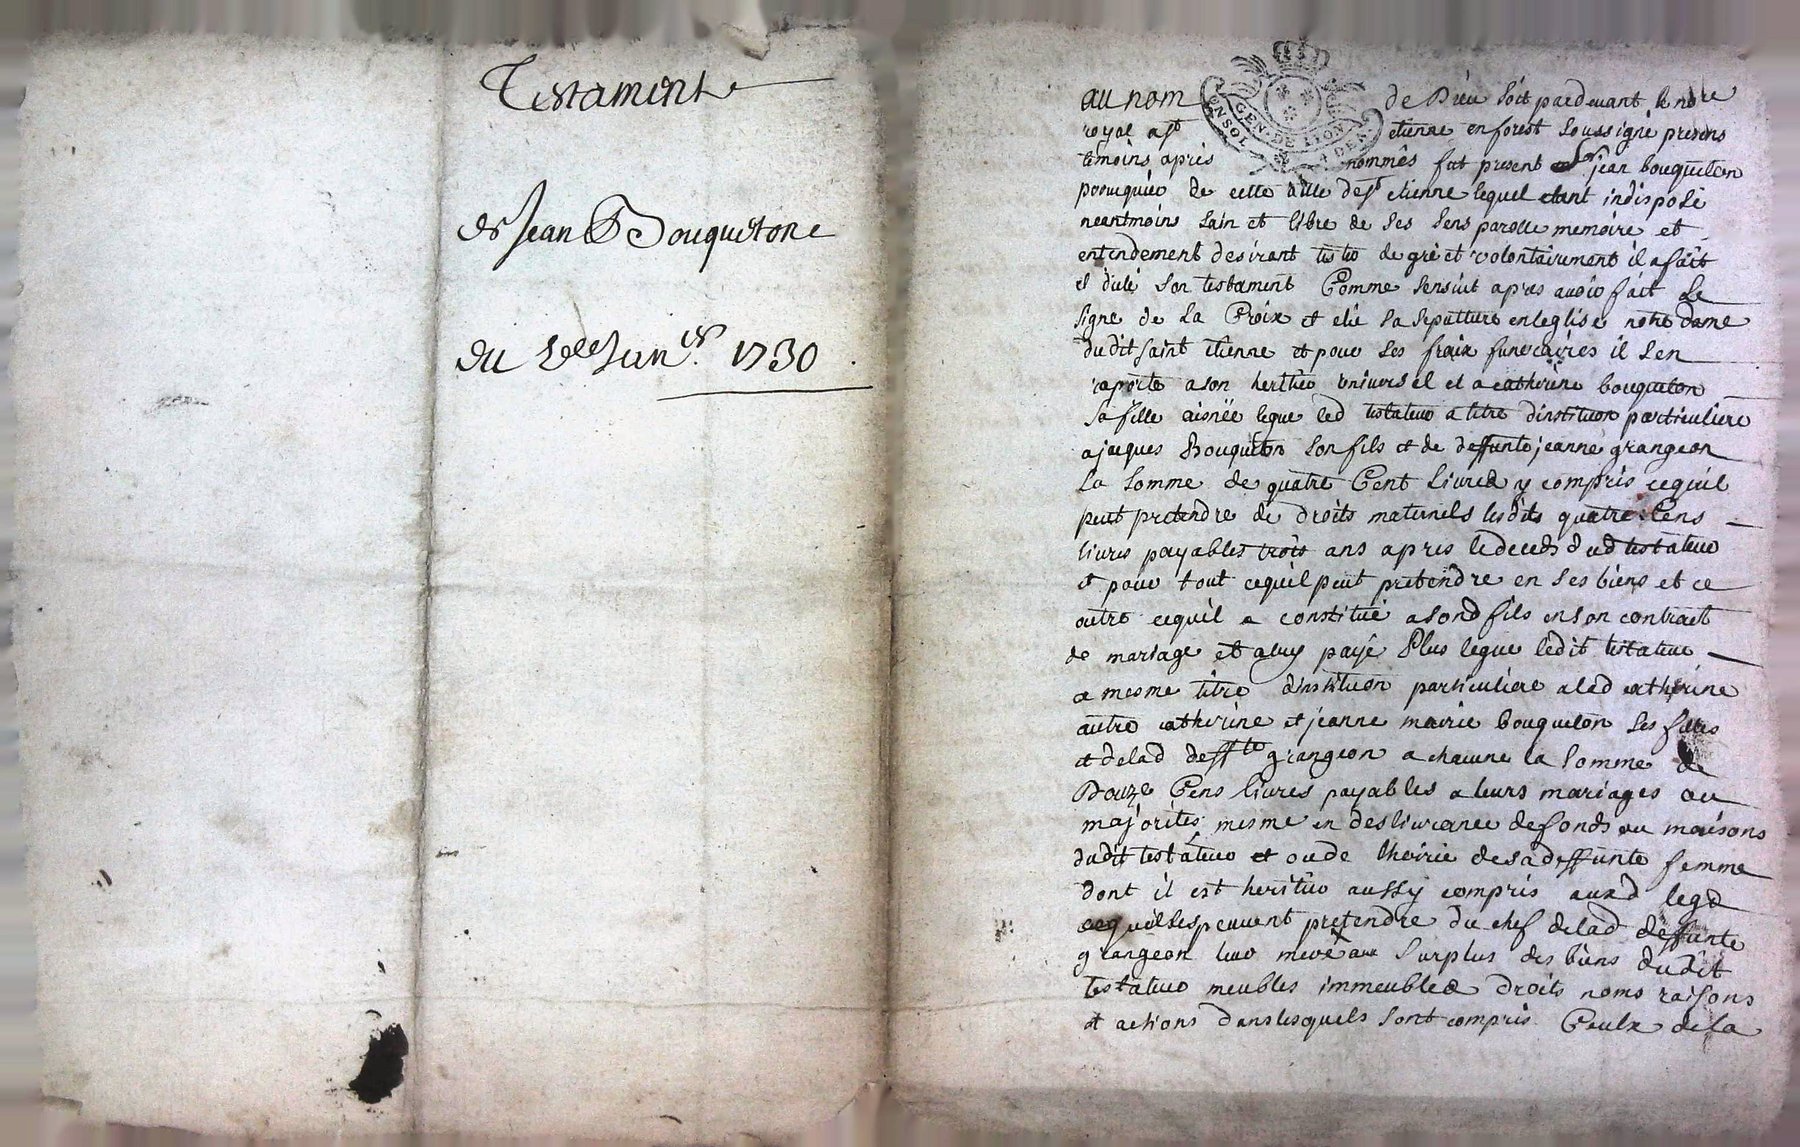 Testament
de Jean Bouquetone
du 1730
GEN. DE LION
au nom de Dieu soit pardevant le nore
royal a St etienne en forest soussigné presens
temoins apres nommés fut present Sr jean bouqueton
perruquier de cette ville de St etienne lequel etant indisposé
neantmoins sain et libre de ses sens parolle memoire et
entendement desirant tester de gré et volontairement il a fait
et dicté son testament Comme sensuit apres avoir fait Le
signe de La Croix et elu sa sepulture en leglise notre dame
dudit saint etienne et pour ses fraix funeraires il sen
raporte a son heritier universel et a catherine bouqueton
sa fille aisnée legue led testateur a titre dinstitution particuliere
a jacques Bouqueton son fils et de deffunte jeanne grangeon
La somme de quatre Cent Livres y compris cequil
peut pretendre de droits maternels lesdits quatre Cens
livres payables trois ans apres le deceds dud testateur
et pour tout cequil peut pretendre en ses biens et ce
outre cequil a constitué a sond fils en son contract
de mariage et a luy payé Plus legue ledit testateur
a mesme titre dinstitution particuliere a lad catherine
autre catherine et jeanne marie bouqueton ses filles
et delad deffte grangeon a chacune la somme de
Douze Cens livres payables a leurs mariages ou
majorités mesme en deslivrance de fonds ou maisons
dudit testateur et ou de lhoirie de sa deffunte femme
dont il est heritier aussy compris auxd legs
cequelles peuvent pretendre du chef delad deffunte
grangeon leur mere au surplus des biens dudit
testateur meubles immeubles droits noms raisons
et actions dans lesquels sont compris Ceulx de la